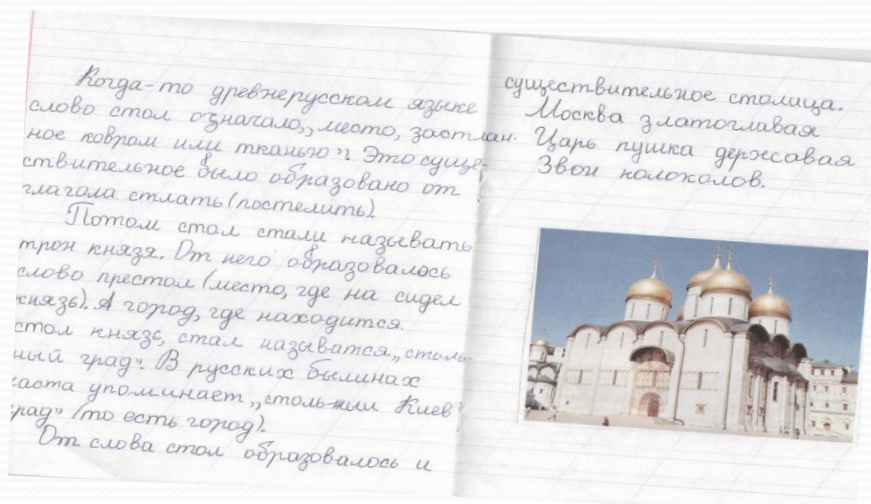 Когда-то древнерусском языке
слово стол означало,, место, застлан-
ное ковром или тканью". Это суще-
ствительное было образовано от
глагола стлать (постелить).
Потом стол стали называть
трон князя. От него образовалось
слово престол (место, где на сидел
князь). А город, где находится
стол князе, стал называтся „столь-
ный град". В русских былинах
часта упоминает „столь-ный Киев
град" (то есть город).
От слова стол образовалось и
существительное столица.
Москва златоглавая
Царь пушка державая
Звон колоколов.